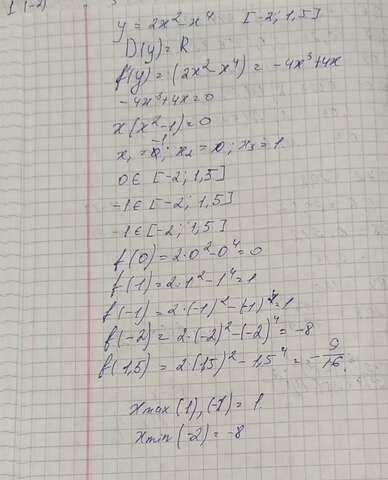 y = 2x² - x⁴ [-2; 1,5]
D(y) = R
f'(y) = (2x² - x⁴) = -4x³ + 4x
-4x³ + 4x = 0
x(x² - 1) = 0
x₁ = -1; x₂ = 0; x₃ = 1
0 ∈ [-2; 1,5]
-1 ∈ [-2; 1,5]
-1 ∈ [-2; 1,5]
f(0) = 2·0² - 0⁴ = 0
f(1) = 2·1² - 1⁴ = 1
f(-1) = 2·(-1)² - (-1)⁴ = 1
f(-2) = 2·(-2)² - (-2)⁴ = -8
f(1,5) = 2·(1,5)² - 1,5⁴ = -9/16
xmax(1), (-1) = 1
xmin(-2) = -8